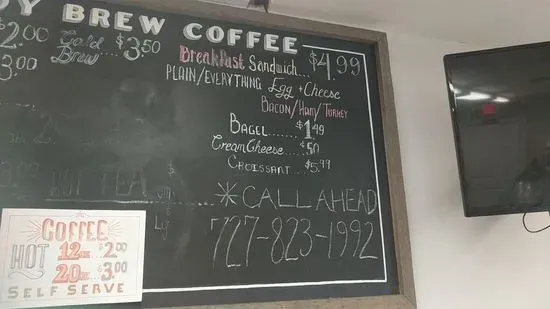 DY BREW COFFEE
$2.00 Cold Brew $3.50
3.00
Breakfast Sandwich... $4.99
PLAIN/EVERYTHING Egg + Cheese
BACON/HAM/TURKEY
BAGEL........ $1.49
Cream Cheese..... $.50
CROISSANT.... $5.99
HOT TEA
Lg
* CALL AHEAD
727-823-1992
COFFEE
HOT 12oz $2.00
20oz $3.00
SELF SERVE